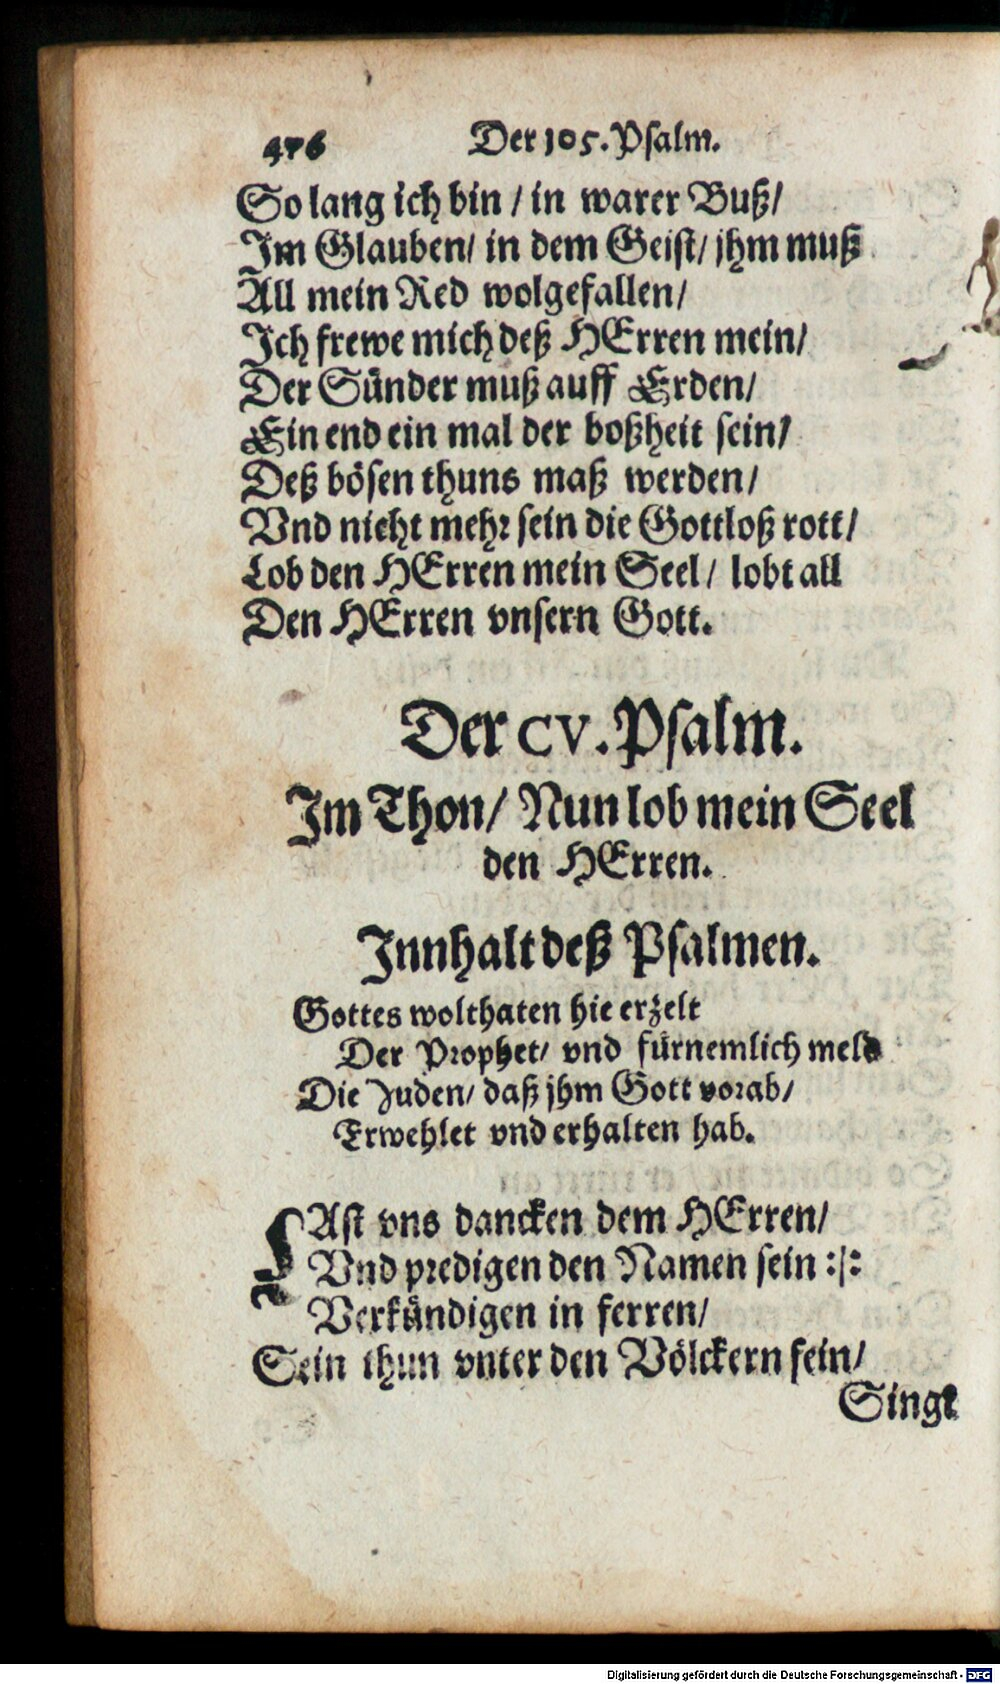 476 Der 105. Psalm.
So lang ich bin / in warer Buß /
Im Glauben / in dem Geist / jhm muß
All mein Red wolgefallen /
Ich frewe mich deß HErren mein /
Der Sünder muß auff Erden /
Ein end ein mal der boßheit sein /
Deß bösen thuns maß werden /
Vnd nicht mehr sein die Gottloß rott /
Lob den HErren mein Seel / lobt all
Den HErren vnsern Gott.
Der CV. Psalm.
Im Thon / Nun lob mein Seel
den HErren.
Innhalt deß Psalmen.
Gottes wolthaten hie erzelt
Der Prophet / vnd fürnemlich meld
Die Juden / daß jhm Gott vorab /
Erwehlet vnd erhalten hab.
LAst vns dancken dem HErren /
Vnd predigen den Namen sein :/:
Verkündigen in ferren /
Sein thun vnter den Völckern fein /
Singt
Digitalisierung gefördert durch die Deutsche Forschungsgemeinschaft - DFG